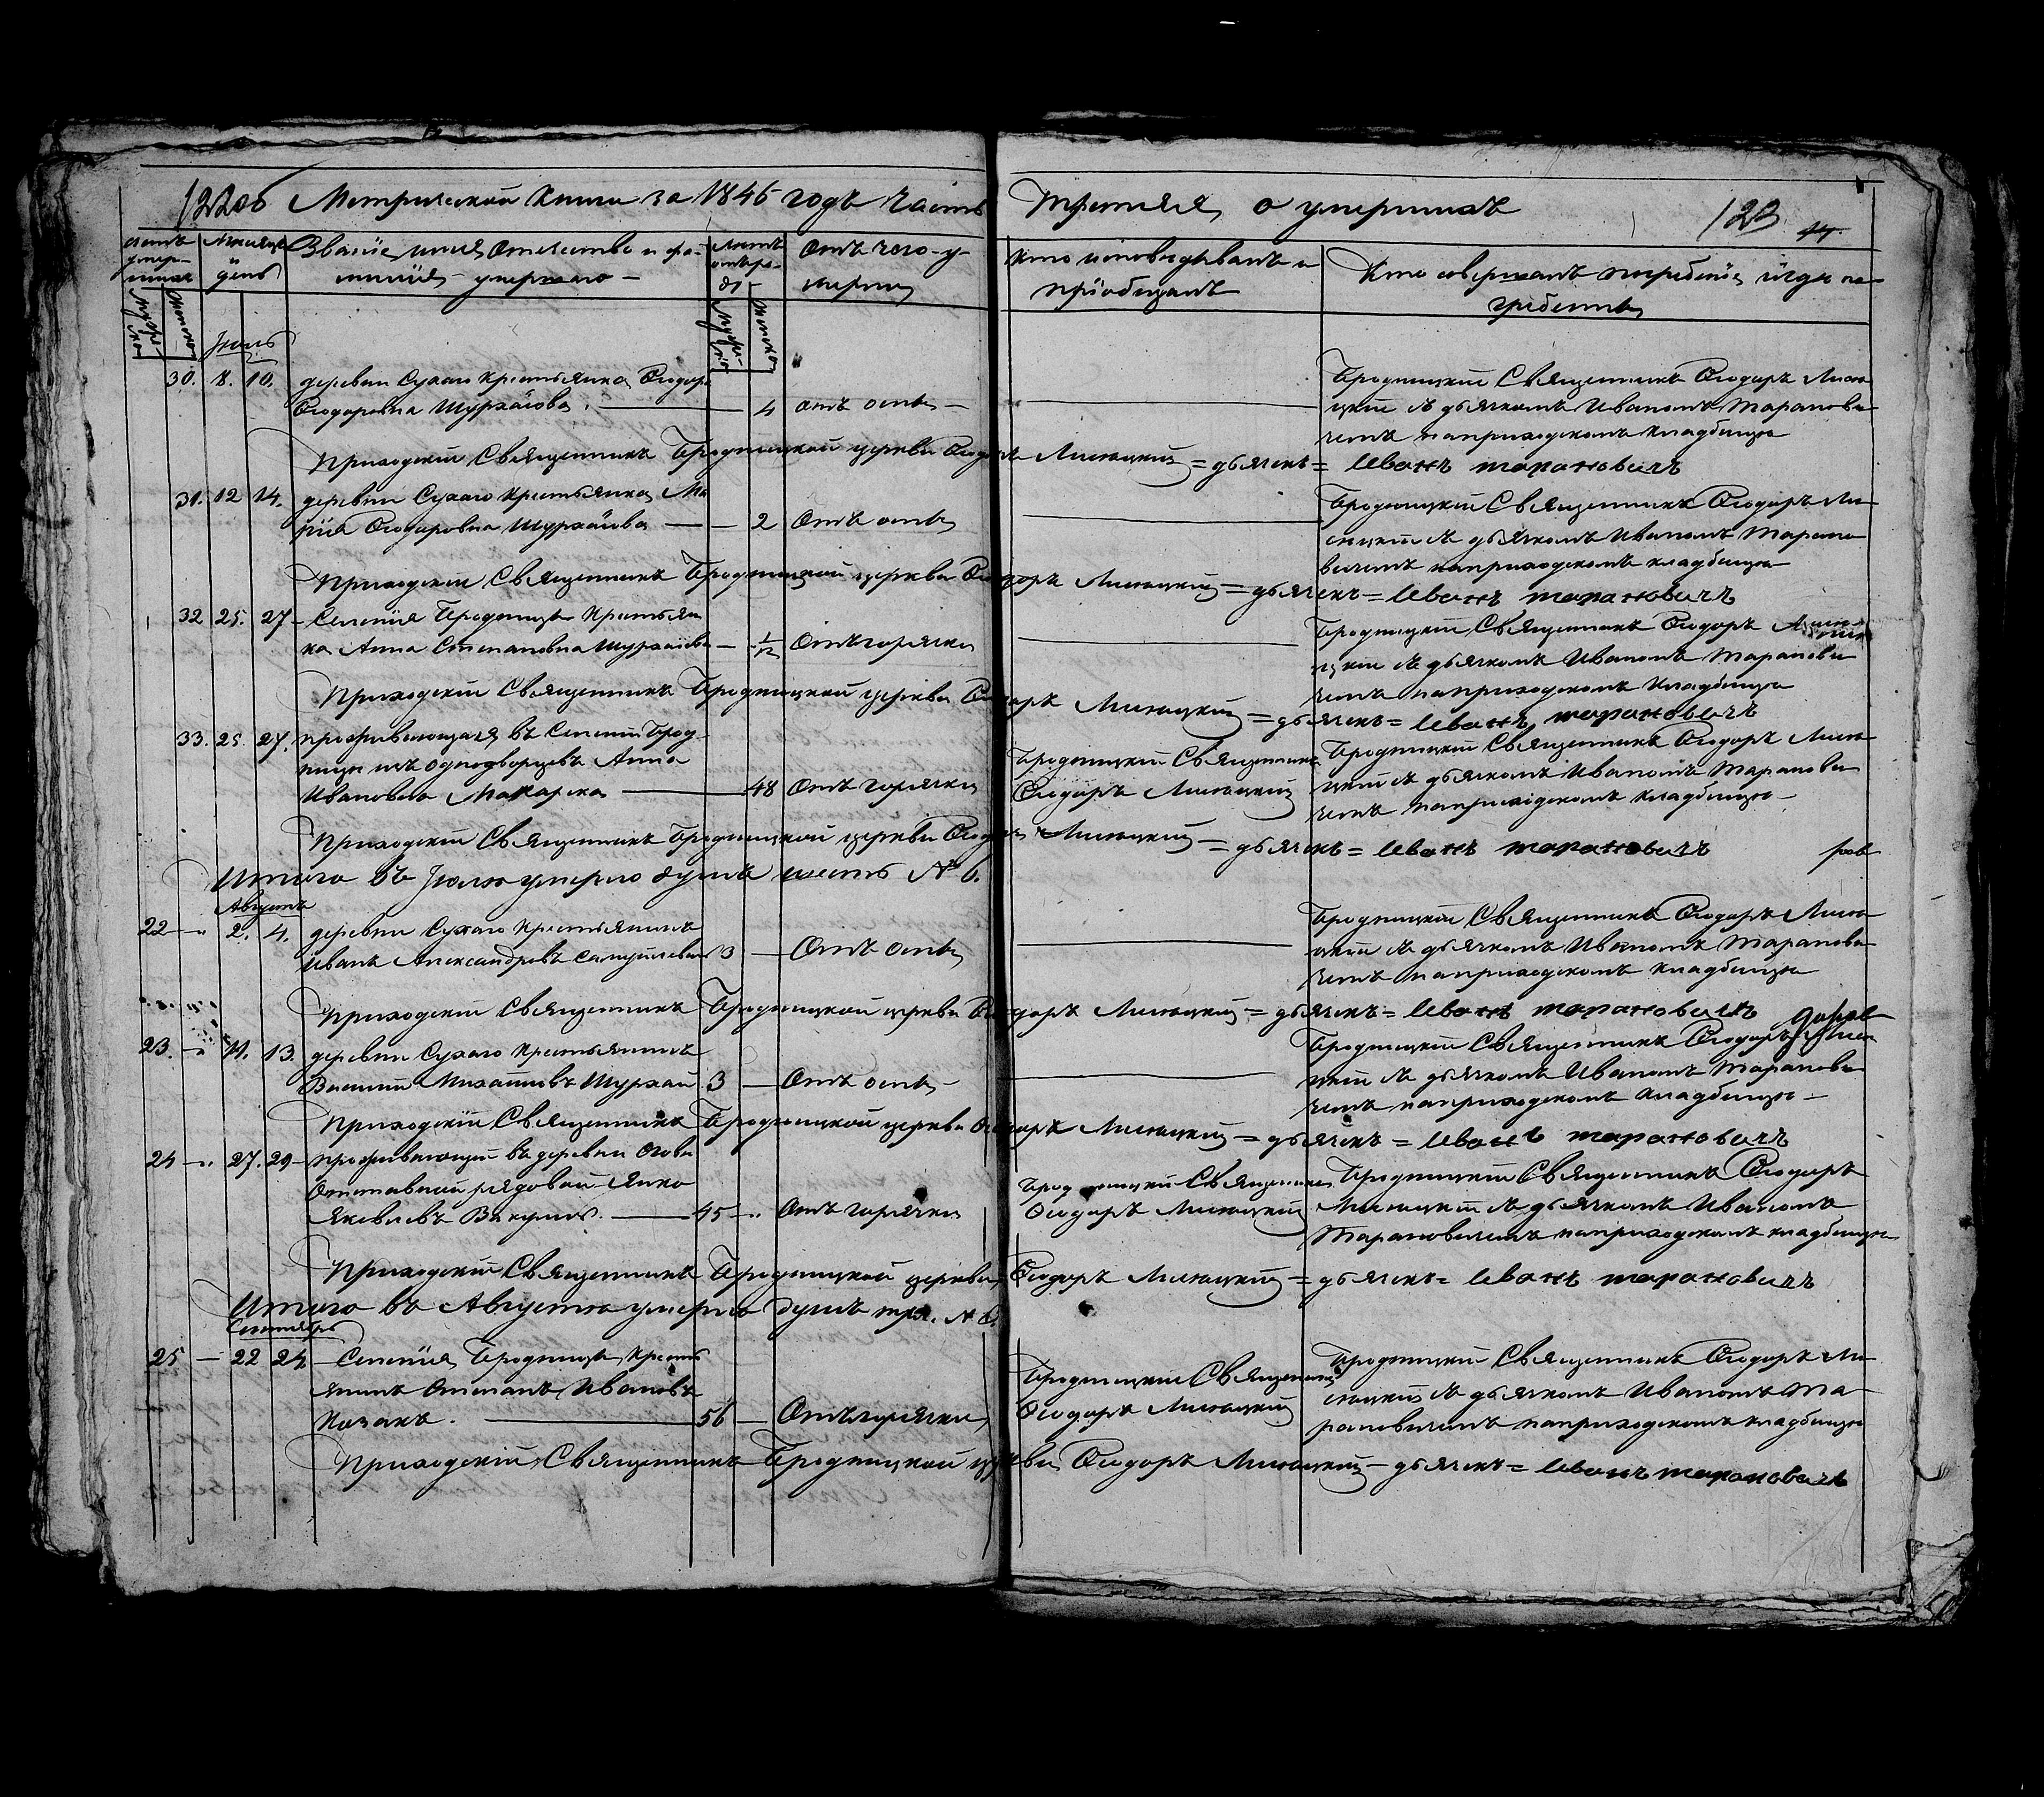 122об Метрической Книги за 1846 годъ Часть Третья о умершихъ 123 44
Счетъ умер-шихъ
Мѣсяцъ и день
Званіе, имя, отчество и фа-
миліе умершаго
Лѣта отъ ро-ду
Отъ чего у-
мерли
Кто исповѣдывалъ и
пріобщалъ
Кто совершалъ погребеніе и гдѣ по-
гребены
Мужеска
Женска
Мужеска
Женска
Іюль
30. 8. 10. деревни Сухаго Крестьянка Ѳеодора
Ѳеодоровна Шурхаіова 4 отъ оспы
Бродницкій Священникъ Ѳеодоръ
цкій съ дьячкомъ Иваномъ Таранови
чемъ на приходскомъ кладбищѣ
Приходскій Священникъ Бродницкой церкви Ѳеодоръ = дьячекъ = Иванъ Тарановичъ
31. 12 14. деревни Сухаго Крестьянка Ма
рія Ѳеодоровна Шурхаіова 2 Отъ оспы
Бродницкій Священникъ Ѳеодоръ
цкій съ дьячкомъ Иваномъ Тарано
вичемъ на приходскомъ кладбищѣ
Приходскій Священникъ Бродницкой церкви Ѳеодоръ = дьячекъ = Иванъ Тарановичъ
32 25. 27 Селенія Бродницы Крестьян
ка Анна Степановна Шурхаіова 1/12 Отъ горячки
Бродницкій Священникъ Ѳеодоръ
цкій съ дьячкомъ Иваномъ Таранови
чемъ на приходскомъ кладбищѣ
Приходскій Священникъ Бродницкой церкви Ѳеодоръ = дьячекъ = Иванъ Тарановичъ
33. 25. 27. проживающая въ Селеніи Брод
ницы изъ однодворцевъ Анна
Ивановна Макарска 48 Отъ горячки
Бродницкій Священникъ
Ѳеодоръ
Бродницкій Священникъ Ѳеодоръ
цкій съ дьячкомъ Иваномъ Таранови
чемъ на приходскомъ кладбищѣ
Приходскій Священникъ Бродницкой церкви Ѳеодоръ = дьячекъ = Иванъ Тарановичъ
Итого въ Іюлѣ умерло душъ шесть № 6.
Августъ
22 2. 4. деревни Сухаго Крестьянинъ
Иванъ Александровъ Самуйловичъ 3 Отъ оспы
Бродницкій Священникъ Ѳеодоръ
цкій съ дьячкомъ Иваномъ Таранови
чемъ на приходскомъ кладбищѣ
Приходскій Священникъ Бродницкой церкви Ѳеодоръ = дьячекъ = Иванъ Тарановичъ
23. 11. 13. деревни Сухаго Крестьянинъ
Василій Михайловъ Шурхай 3 Отъ оспы
Бродницкій Священникъ Ѳеодоръ
цкій съ дьячкомъ Иваномъ Таранови
чемъ на приходскомъ кладбищѣ
Приходскій Священникъ Бродницкой церкви Ѳеодоръ = дьячекъ = Иванъ Тарановичъ
24 27. 29 проживающій въ деревни Осовы
Отставной рядовой Янко
Яковлевъ 45 Отъ горячки
Бродницкій Священникъ
Ѳеодоръ
Бродницкій Священникъ Ѳеодоръ
съ дьячкомъ Иваномъ
Тарановичемъ на приходскомъ кладбищѣ
Приходскій Священникъ Бродницкой церкви Ѳеодоръ = дьячекъ = Иванъ Тарановичъ
Итого въ Августѣ умерло душъ три.
Сентябрь
25 22 24 Селенія Бродницы Кресть
янинъ Степанъ Ивановъ
Козакъ. 56 Отъ горячки
Бродницкій Священникъ
Ѳеодоръ
Бродницкій Священникъ Ѳеодоръ
съ дьячкомъ Иваномъ Та
рановичемъ на приходскомъ кладбищѣ
Приходскій Священникъ Бродницкой церкви Ѳеодоръ дьячекъ = Иванъ Тарановичъ